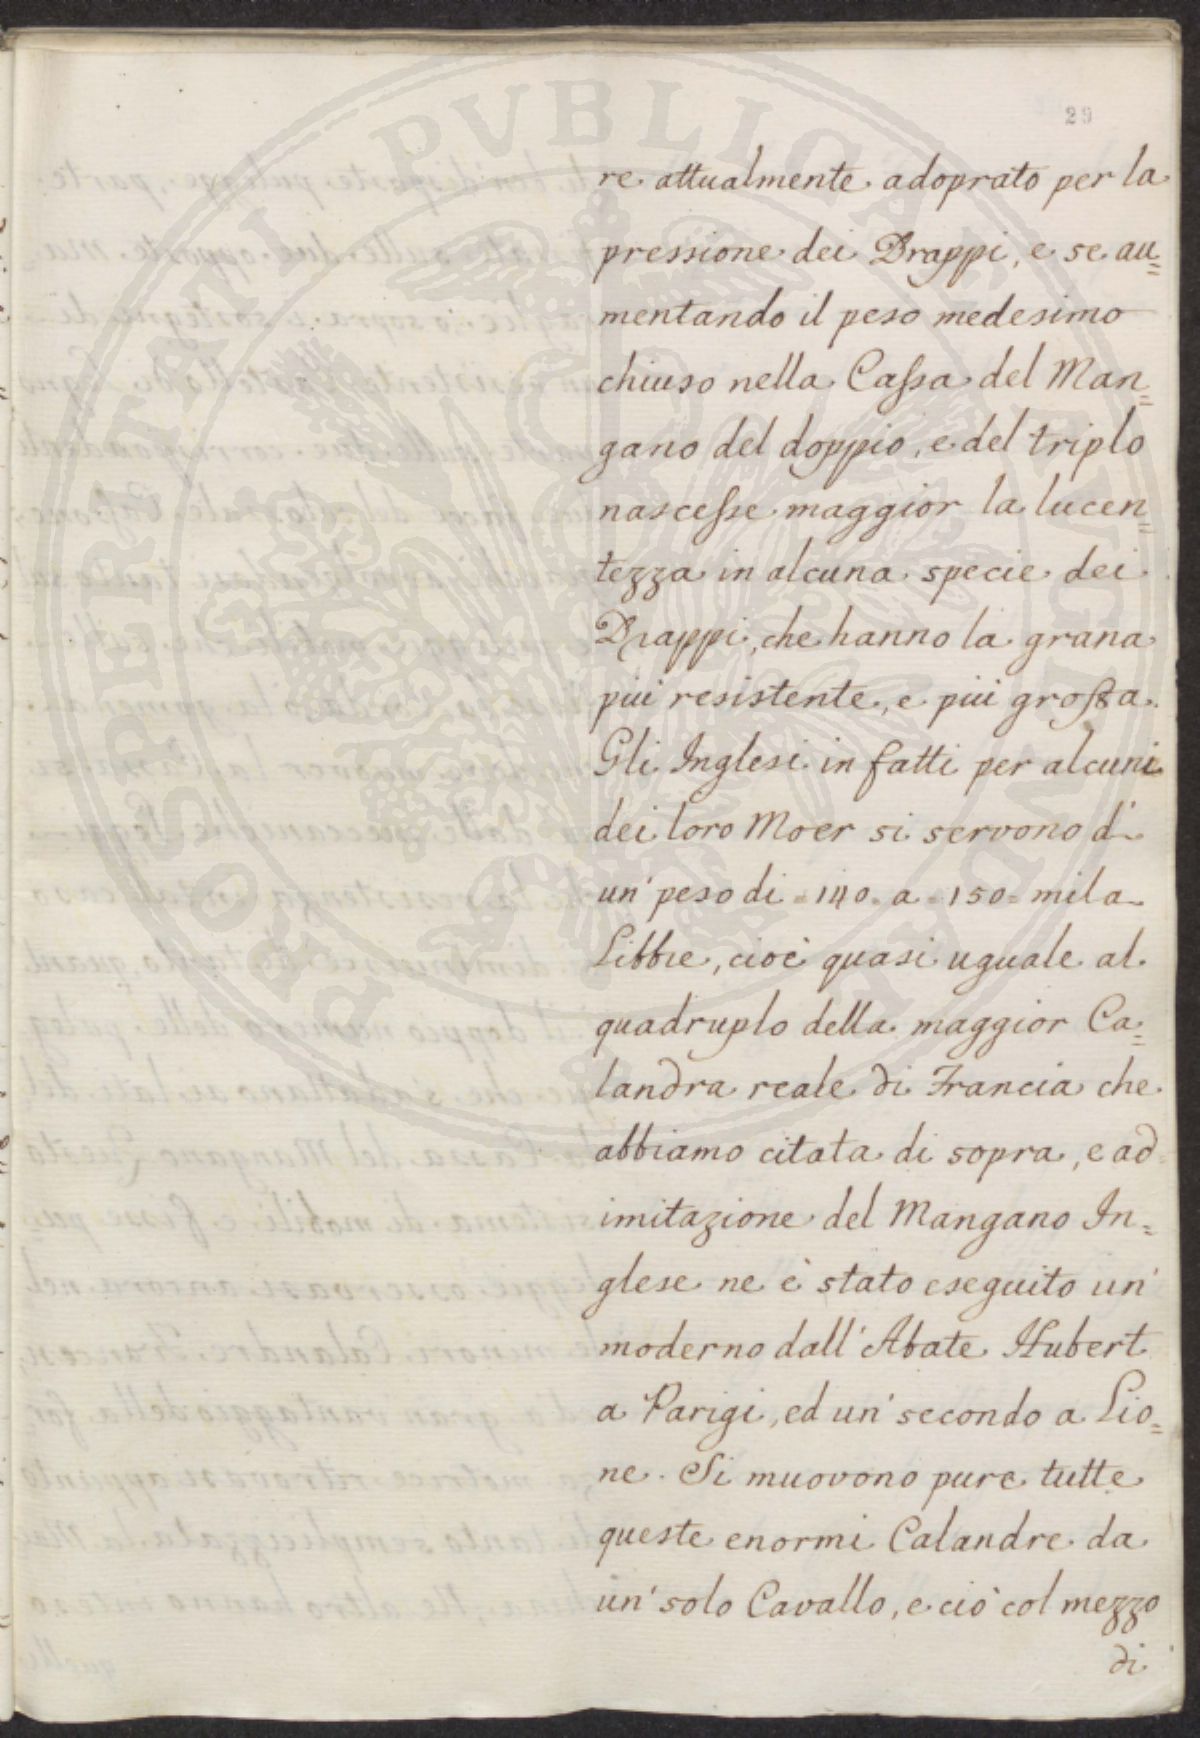 29
re attualmente adoprato per la
pressione dei Drappi, e se au=
mentando il peso medesimo
chiuso nella Caſsa del Man=
gano del doppio, e del triplo
nasceſse maggior la lucen=
tezza in alcuna specie dei
Drappi, che hanno la grana
più resistente, e più groſsa.
Gli Inglesi in fatti per alcuni
dei loro Moer si servono d'
un' peso di = 140 = a = 150 = mila
Libbre, cioè quasi uguale al
quadruplo della maggior Ca=
landra reale di Francia che
abbiamo citata di sopra, e ad
imitazione del Mangano In=
glese ne è stato eseguito un'
moderno dall' Abate Hubert
a Parigi, ed un' secondo a Lio=
ne. Si muovono pure tutte
queste enormi Calandre da
un' solo Cavallo, e ciò col mezzo
di
PROSPERITATI PVBLICAE AVGENDAE